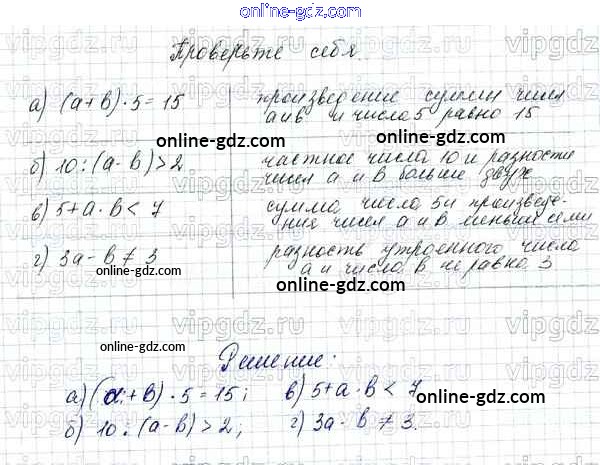 online-gdz.com
Проверьте себя.
а) (a+b)·5=15 произведение суммы чисел
a и b и число 5 равно 15
online-gdz.com online-gdz.com
б) 10:(a-b)>2 частное числа 10 и разности
чисел a и b больше двух
в) 5+a·b<7 сумма числа 5 и произведе-
ния чисел a и b меньше семи
г) 3a-b≠3 разность утроенного числа
a и числа b не равно 3
online-gdz.com online-gdz.com
online-gdz.com
Решение:
а) (a+b)·5=15; в) 5+a·b<7
online-gdz.com
б) 10:(a-b)>2; г) 3a-b≠3.
online-gdz.com